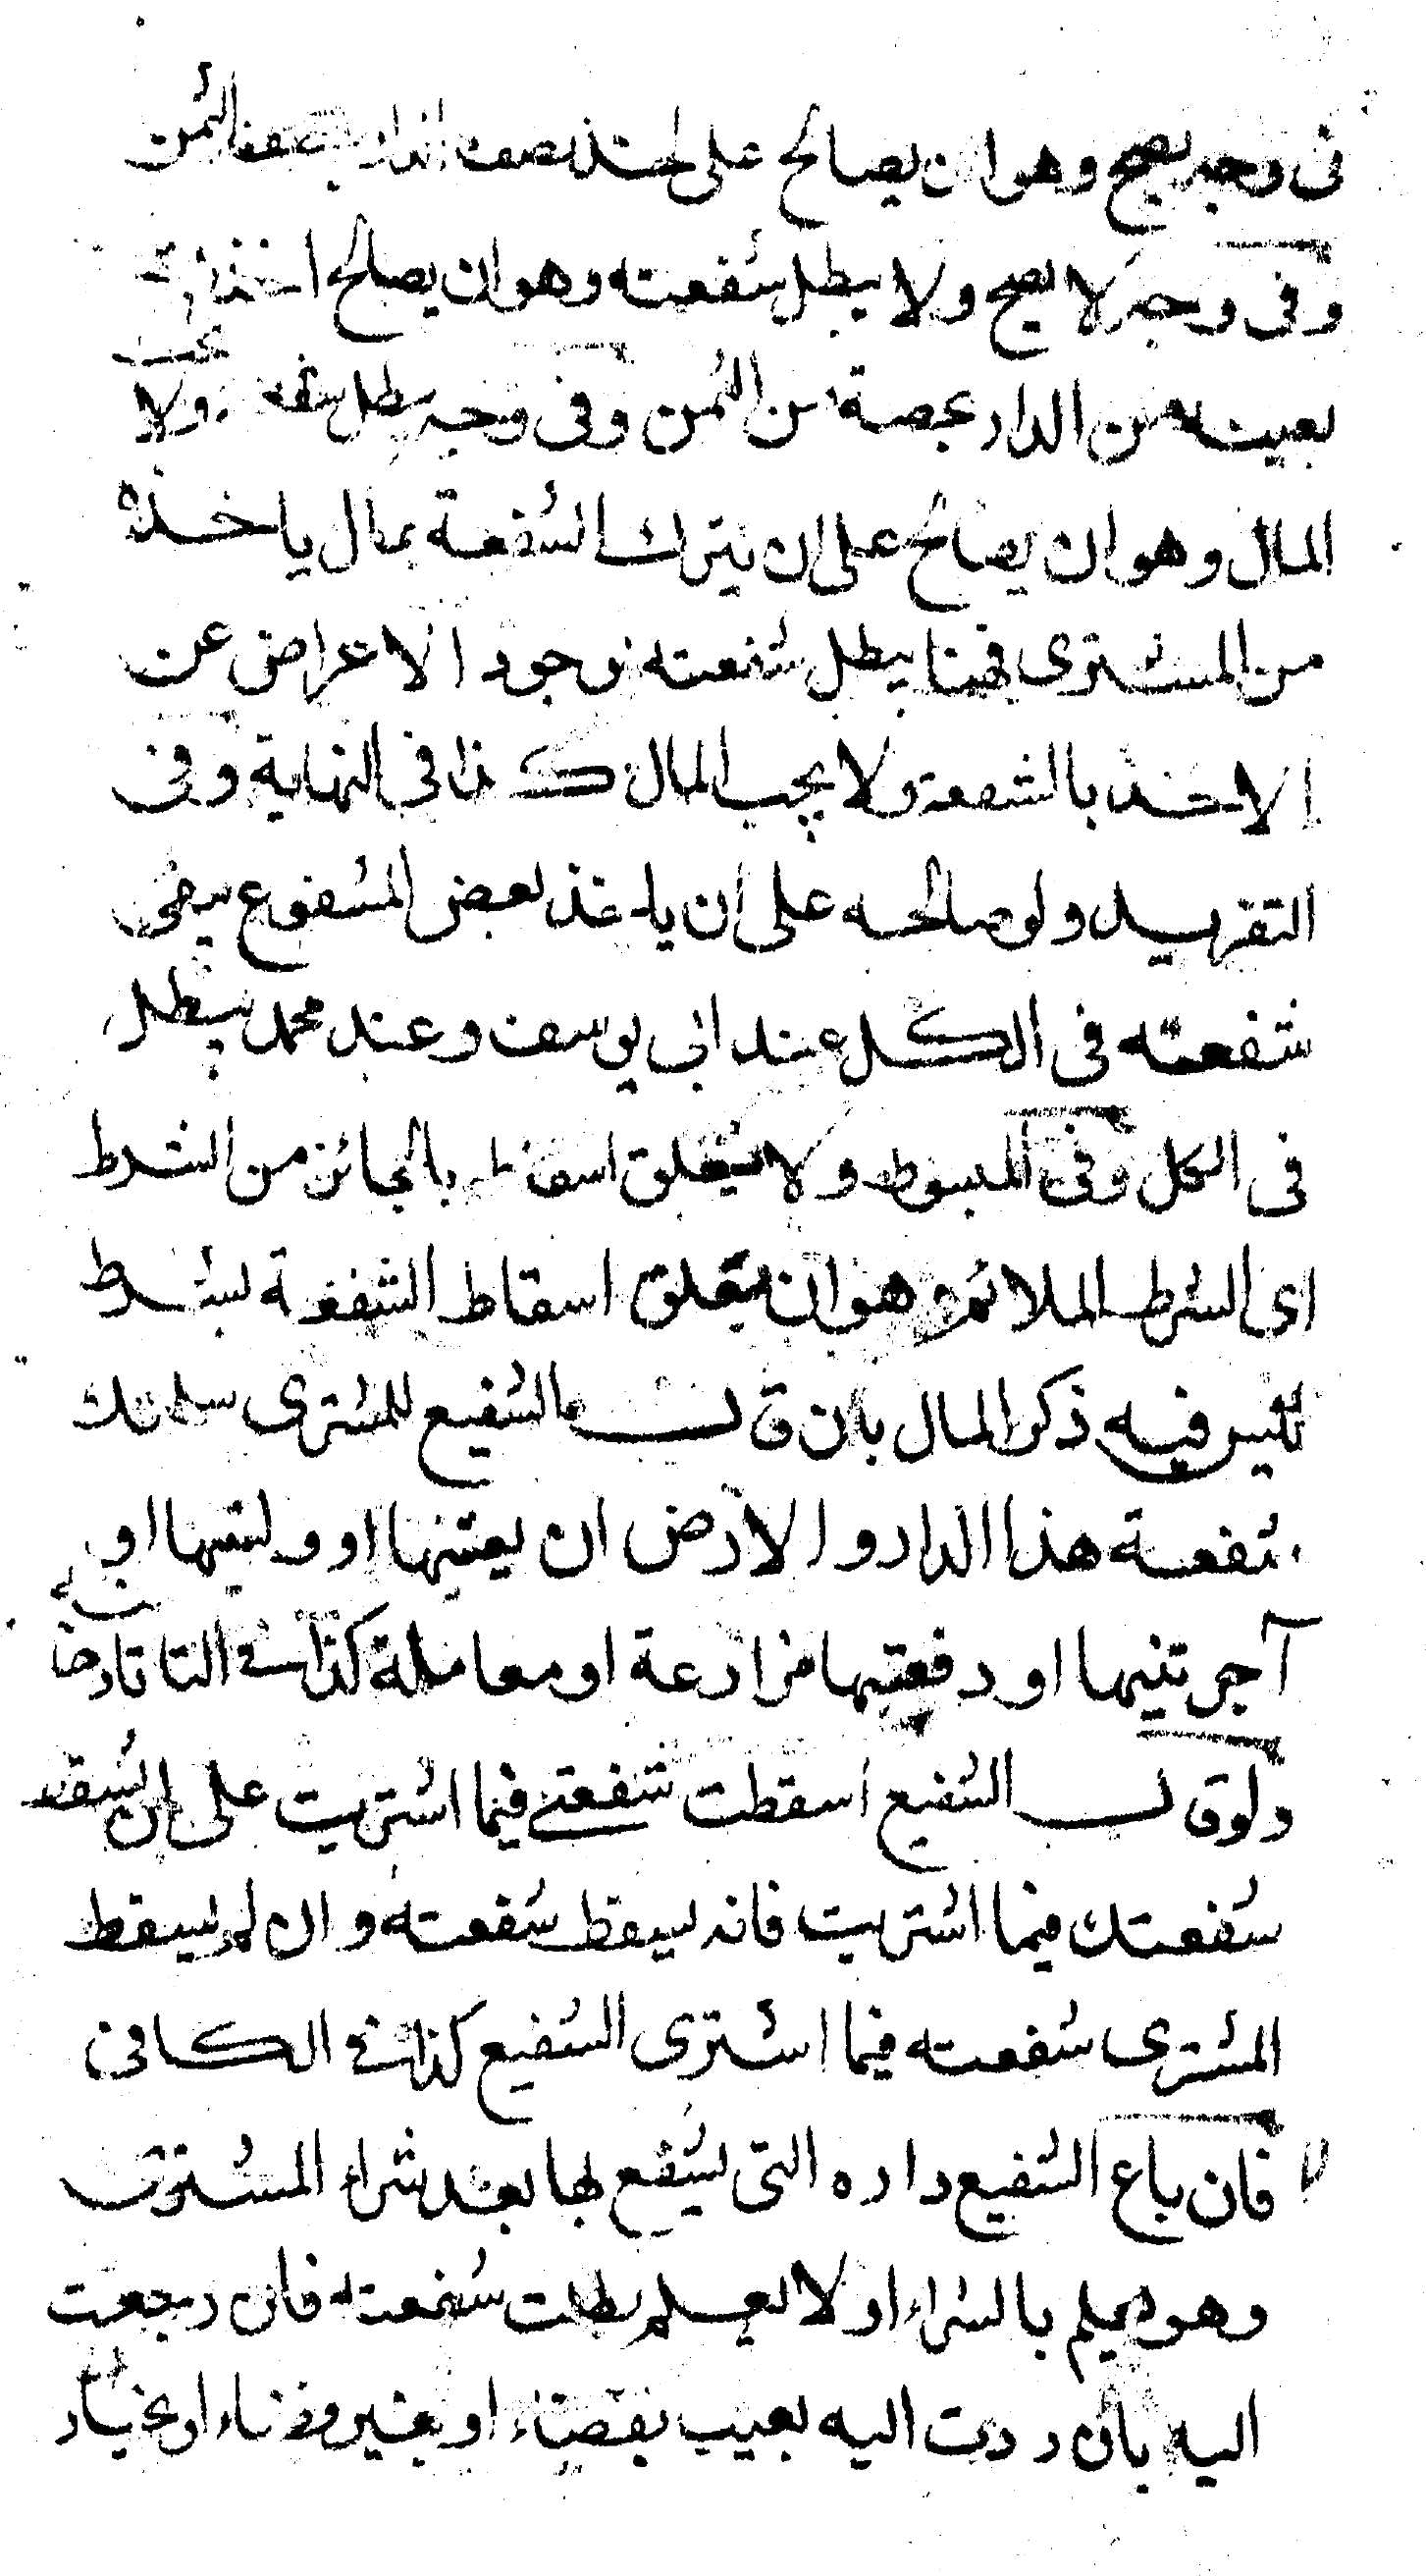 فى وجه يصح وهو ان يصالح على اخذ نصف الدار بنصف الثمن
وفى وجه لا يصح ولا يبطل شفعته وهو ان يصالح اخذ
بعينه من الدار بحصة من الثمن وفى وجه يبطل شفعته ولا يجب
المال وهو ان يصالح على ان يترك الشفعة بمال ياخذه
من المشترى فهنا يبطل شفعته لوجود الاعراض عن
الاخذ بالشفعة ولا يجب المال كذا فى النهاية وفى
التفريد ولو صالحه على ان ياخذ بعض المشفوع يبقى
شفعته فى الكل عند ابى يوسف وعند محمد يبطل
فى الكل وفى المبسوط ولا يتعلق اسقاط بالجائز من الشرط
اى الشرط الملائم وهو ان يتعلق اسقاط الشفعة بشرط
ليس فيه ذكر المال بان قال الشفيع للمشترى سلمتك
شفعة هذا الدار والارض ان بعتنيها او وليتنيها او
آجرتنيها او دفعتيها مزارعة او معاملة كذا فى التاتارخانية
ولو قال الشفيع اسقطت شفعتى فيما اشتريت على ان يسقط
شفعتك فيما اشتريت فانه يسقط شفعته وان لم يسقط
المشترى شفعته فيما اشترى الشفيع كذا فى الكافى
فان باع الشفيع داره التى يشفع بها بعد شراء المشترى
وهو يعلم بالشراء او لا يعلم بطلت شفعته فان رجعت
اليه بان ردت اليه بعيب بقضاء او بغير قضاء او بخيار